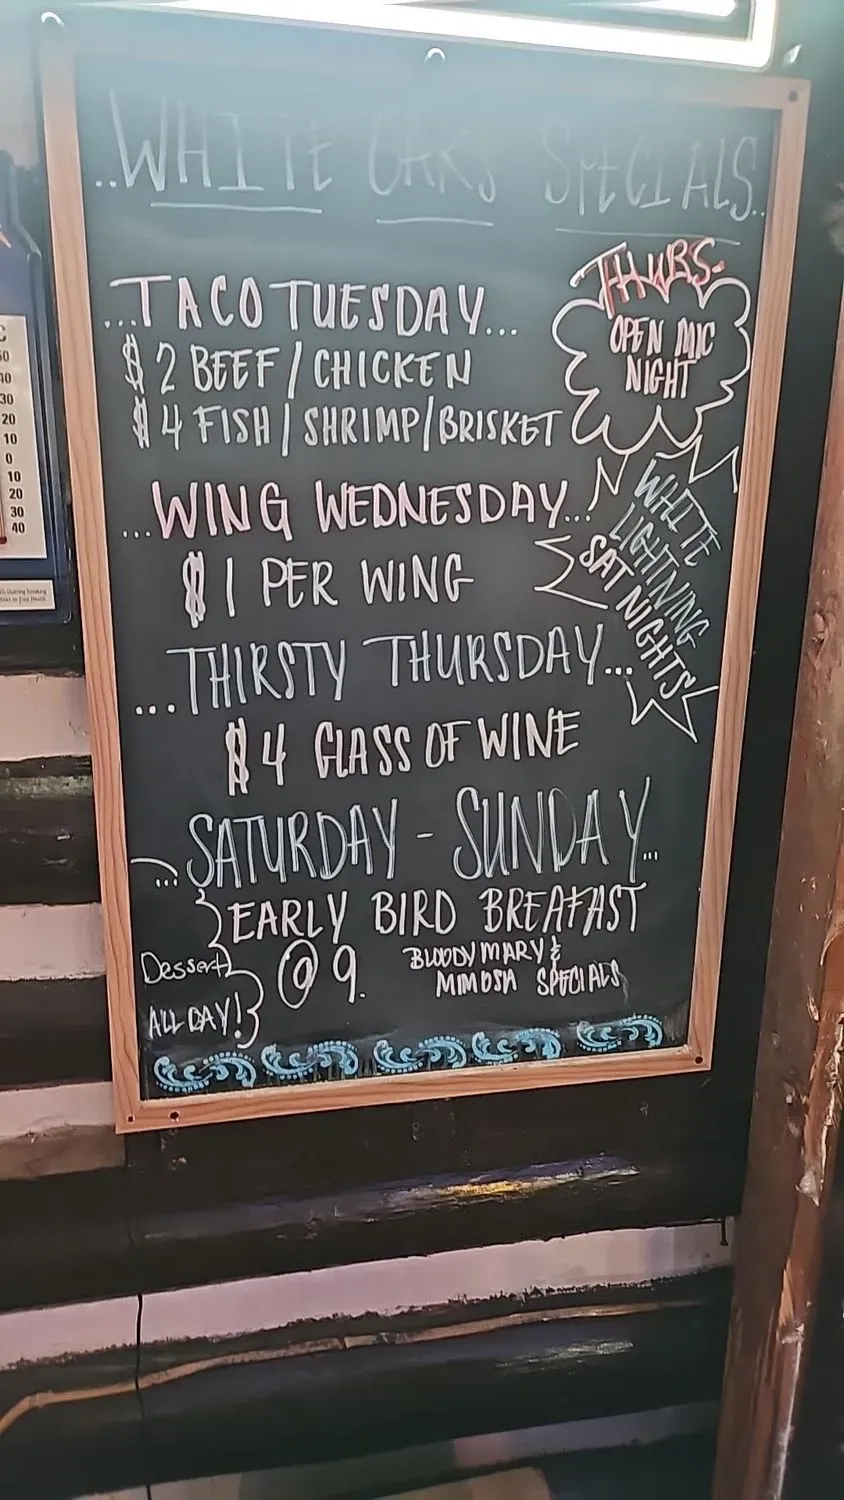 ..WHITE OAKS SPECIALS..
...TACO TUESDAY...
$2 BEEF/CHICKEN
$4 FISH/SHRIMP/BRISKET
THURS.
OPEN MIC
NIGHT
...WING WEDNESDAY...
$1 PER WING
WHITE
LIGHTNING
SAT NIGHTS
...THIRSTY THURSDAY...
$4 GLASS OF WINE
...SATURDAY - SUNDAY...
EARLY BIRD BREAFAST
@ 9.
BLOODY MARY &
MIMOSA SPECIALS
Dessert
ALL DAY!
C
50
40
30
20
10
0
10
20
30
40